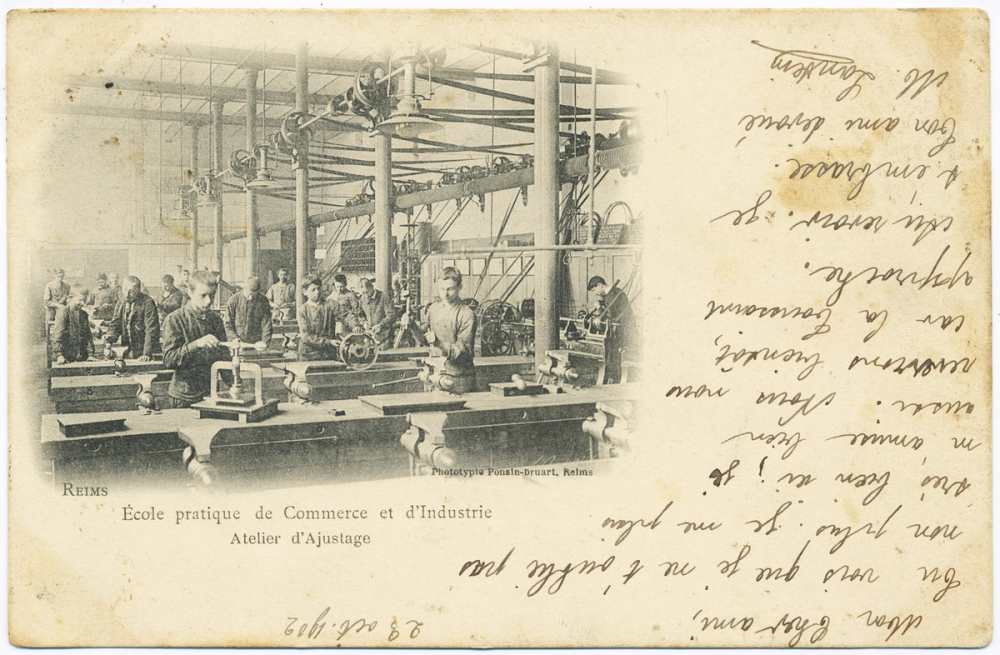 Phototypie Ponsin-Druart, Reims
REIMS
École pratique de Commerce et d'Industrie
Atelier d'Ajustage
23 oct. 1902
Mon Cher ami,
Tu vois que je ne t'oublie pas
non plus. je me plais
très bien ici; je
m'amuse bien
aussi. Nous nous
reverrons bientôt,
car la Toussaint
approche.
Au revoir. je
t'embrasse.
Ton ami dévoué
M.